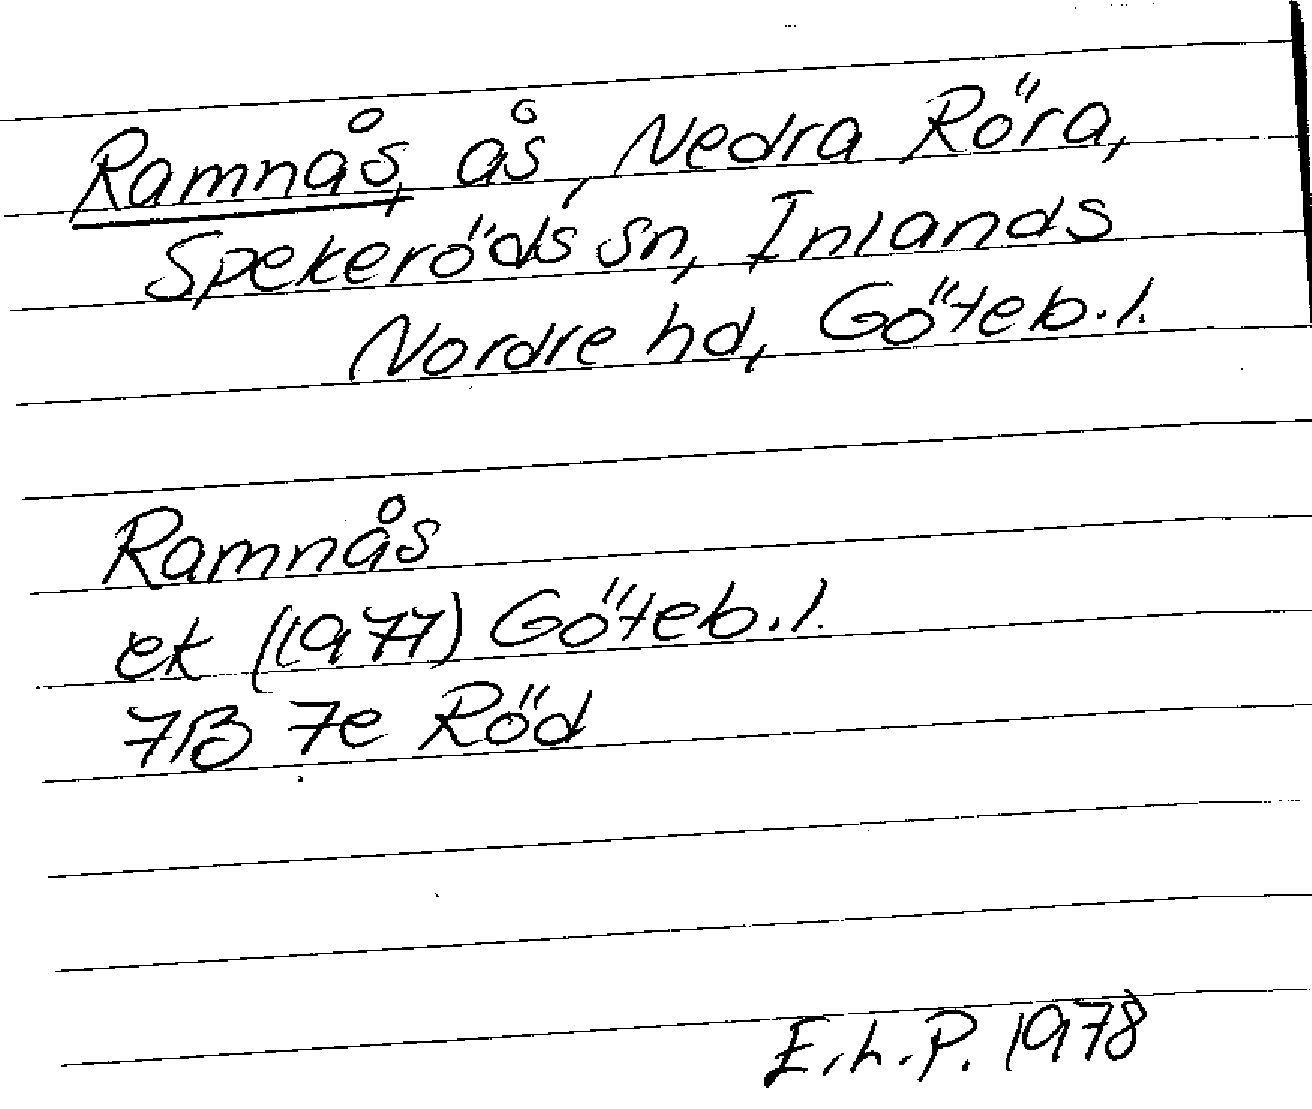 Ramnås, ås, Nedra Röra,
Spekeröds sn, Inlands
Nordre hd, Göteb. l.
Ramnås
ek (1977) Göteb. l.
7B 7e Röd
E. L. P. 1978